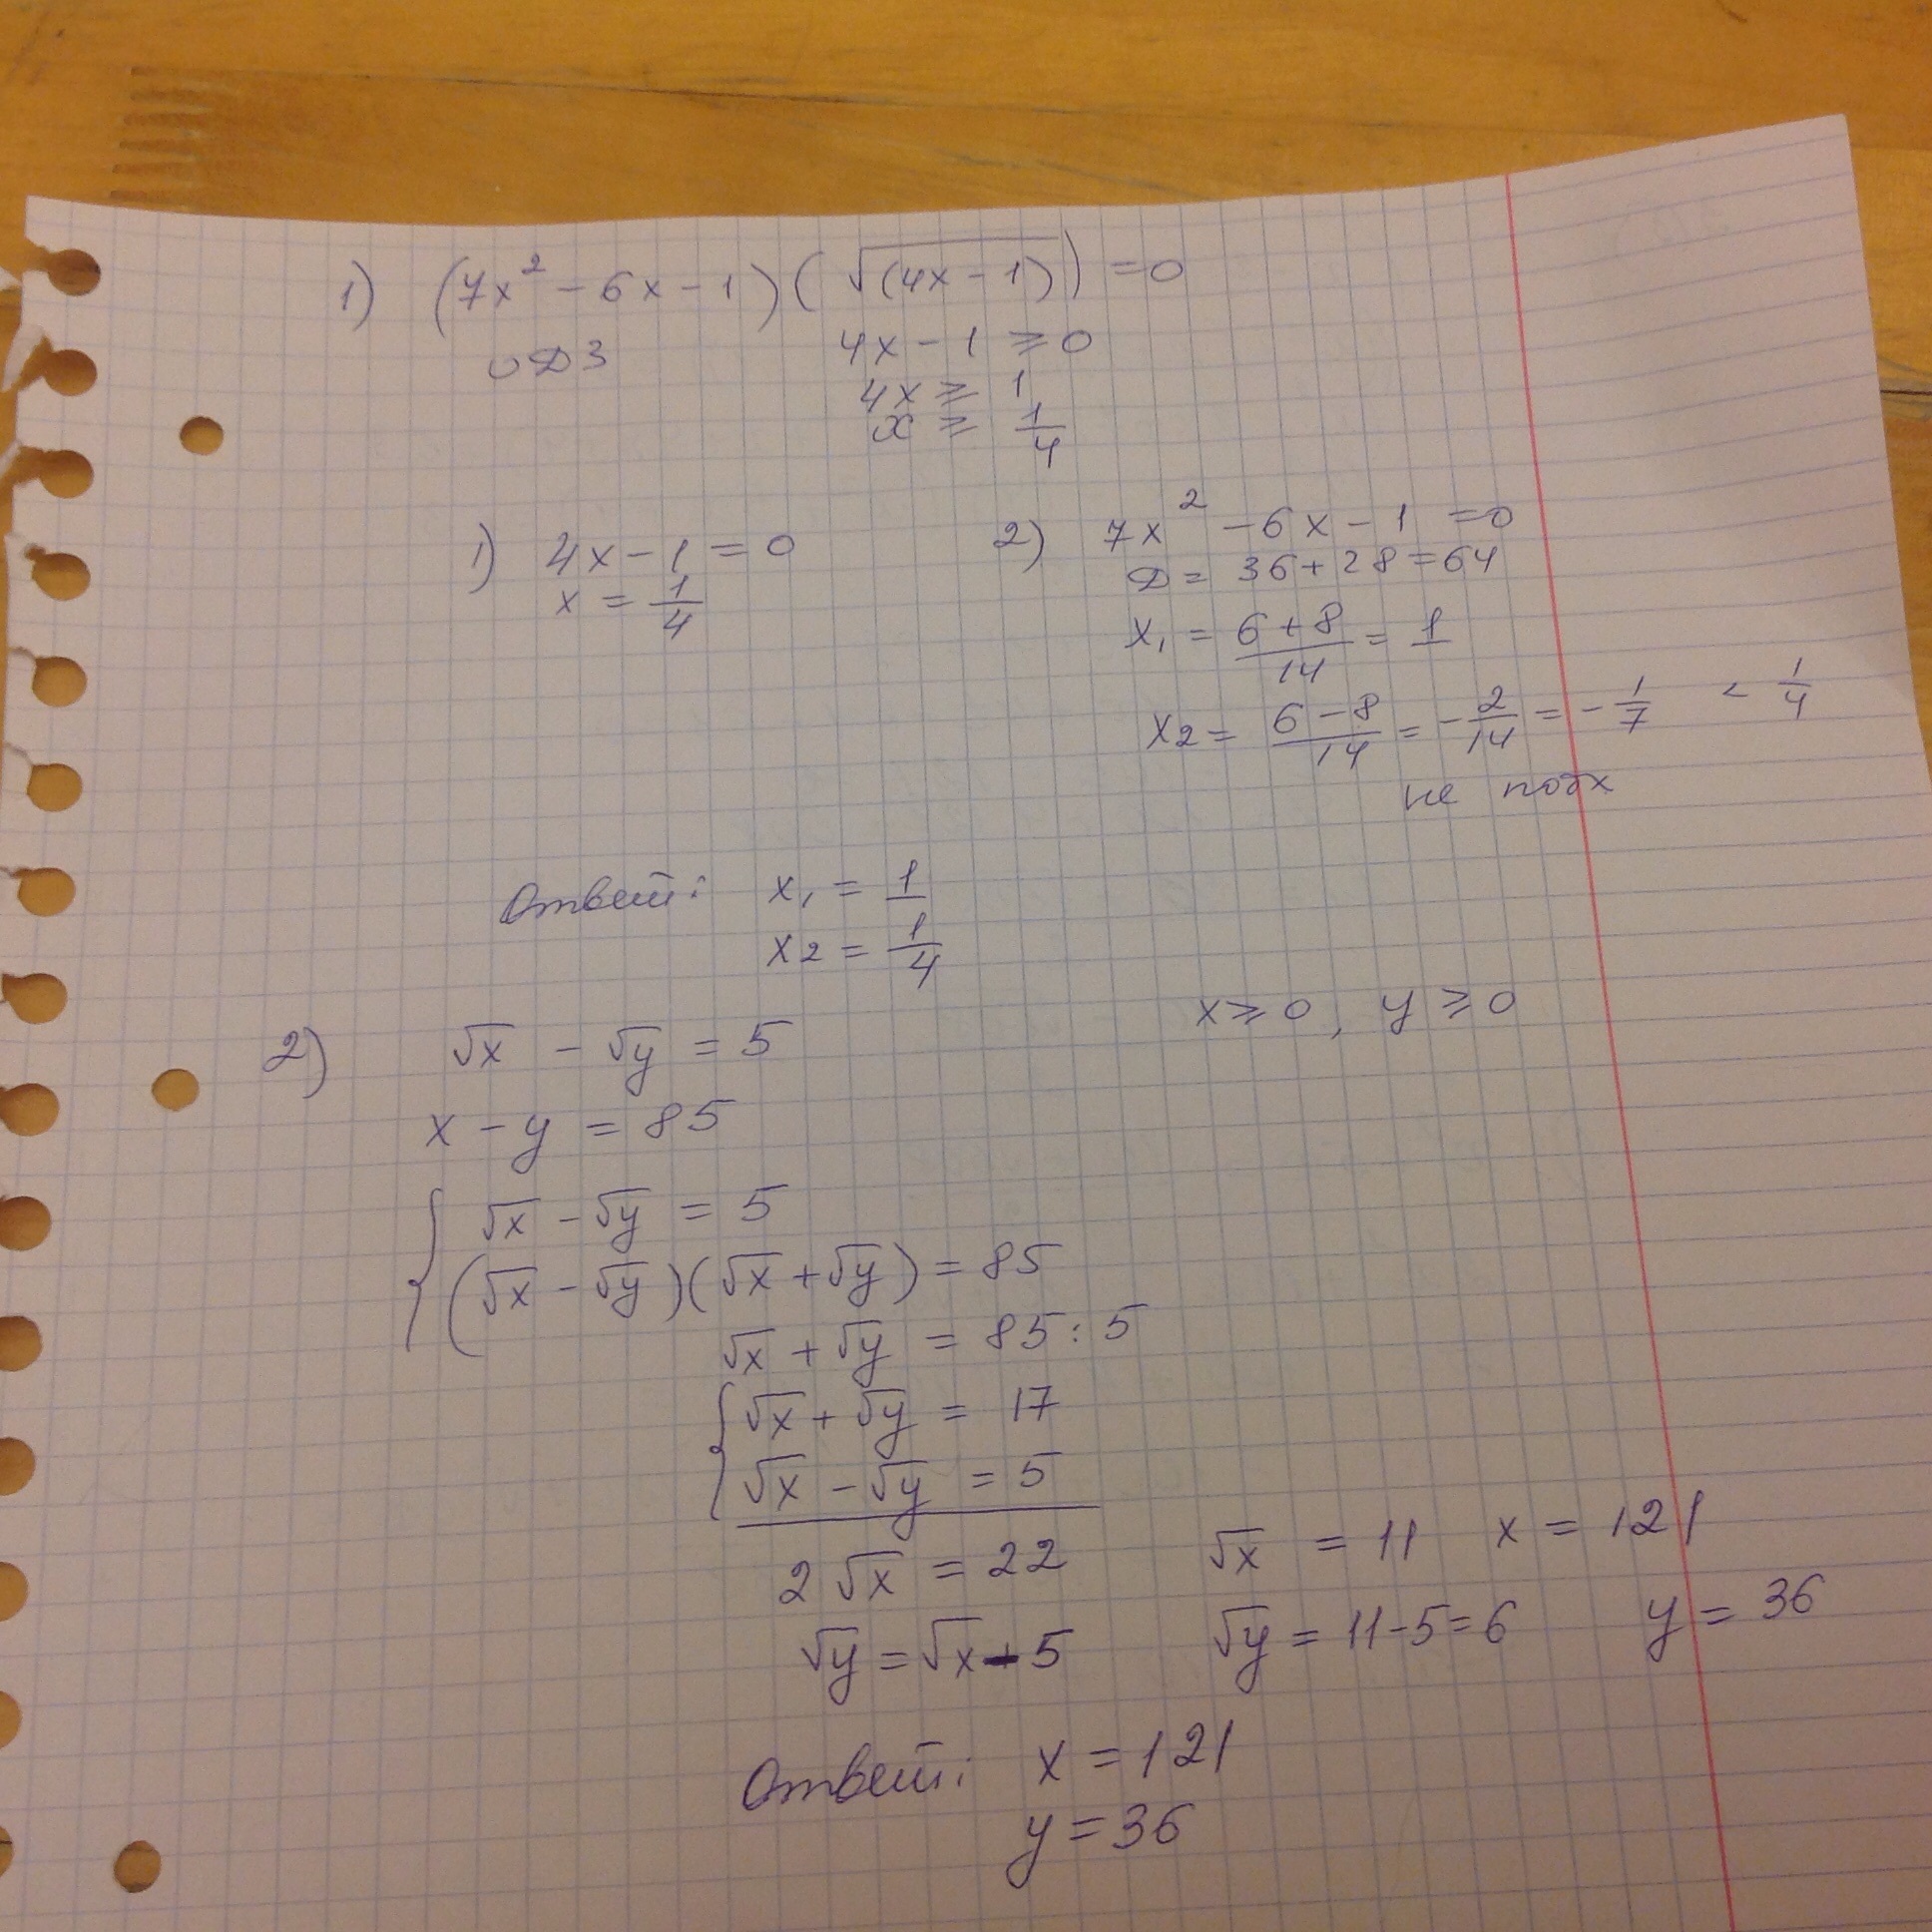 1) (7x² - 6x - 1)(√(4x - 1)) = 0
ОДЗ 4x - 1 ≥ 0
4x ≥ 1
x ≥ 1/4
1) 4x - 1 = 0
x = 1/4
2) 7x² - 6x - 1 = 0
D = 36 + 28 = 64
x₁ = (6 + 8)/14 = 1
x₂ = (6 - 8)/14 = -2/14 = -1/7 < 1/4
не подх
Ответ: x₁ = 1
x₂ = 1/4
2) √x - √y = 5 x ≥ 0, y ≥ 0
x - y = 85
{ √x - √y = 5
(√x - √y)(√x + √y) = 85
√x + √y = 85 : 5
{ √x + √y = 17
√x - √y = 5
2√x = 22 √x = 11 x = 121
√y = √x - 5 √y = 11 - 5 = 6 y = 36
Ответ: x = 121
y = 36